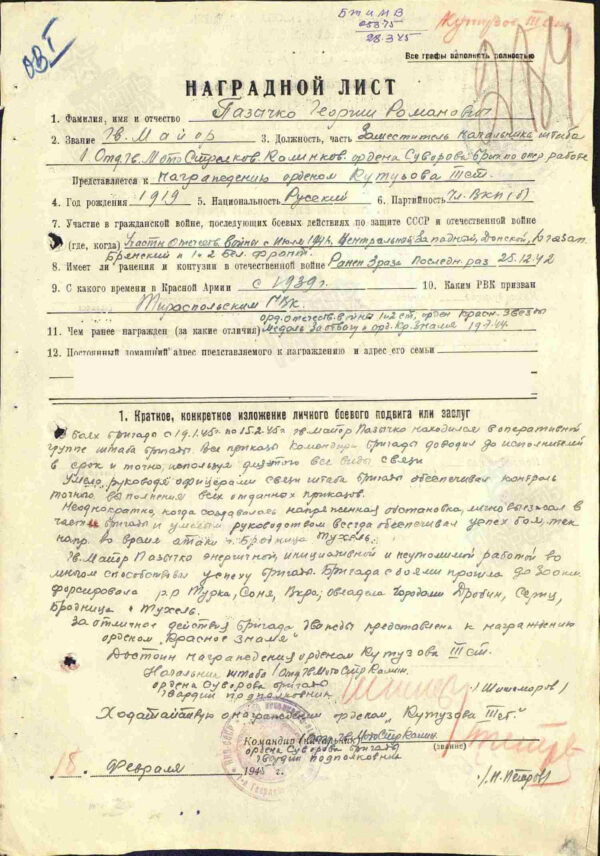 БТиМВ
28.3.45
Кутузов III ст.
Все графы заполнять полностью
НАГРАДНОЙ ЛИСТ
1. Фамилия, имя и отчество Пазычко Георгий Романович
2. Звание Гв. Майор 3. Должность, часть Заместитель Начальника штаба
1 Отд. Гв. Мото Стрелков. Калинков. ордена Суворова бриг. по опер работе
Представляется к награждению орденом Кутузова III ст.
4. Год рождения 1919 5. Национальность Русский 6. Партийность Чл. ВКП(б)
7. Участие в гражданской войне, последующих боевых действиях по защите СССР и отечественной войне
(где, когда) Участн Отечеств Войны с Июля 1941, Центральной, Западной, Донской,
Брянский и 1 и 2 Бел. фронт.
8. Имеет ли ранения и контузии в отечественной войне Ранен 3 раза последн. раз 25.12.42
9. С какого времени в Красной Армии с 1939 г. 10. Каким РВК призван
Тираспольским РВК.
орд. отечеств. войны 1 и 2 ст, орден Красн. Звезды
11. Чем ранее награжден (за какие отличия) Медаль за отвагу и орд. Кр. Знамя 19.7.44.
12. Постоянный домашний адрес представляемого к награждению и адрес его семьи
1. Краткое, конкретное изложение личного боевого подвига или заслуг
В боях бригады с 19.1.45г по 15.2.45г гв. майор Пазычко находился в оперативной
группе штаба бригады. Все приказы Командира бригады доводил до исполнителей
в срок и точно, используя для этого все виды связи.
Умело, руководя офицерами связи штаба бригады обеспечивал контроль
точного выполнения всех отданных приказов.
Неоднократно, когда создавалась напряженная обстановка, лично выезжал в
части бригады и умелым руководством всегда обеспечивал успех боя, так
напр. во время атаки г. Бродница Тухель.
Гв. Майор Пазычко энергичной, инициативной и неутомимой работой во
многом способствовал успеху бригады. Бригада с боями прошла до 300 км.
форсировала р.р Турка, Соня, Вкра; овладела городами Дробин, Серпц,
Бродница и Тухель.
За отличное действия бригада дважды представлена к награждению
орденом „Красное Знамя"
Достоин награждения орденом Кутузова III ст.
Начальник штаба 1 Отд. Гв. Мото Стр Калин.
ордена Суворова бригады
Гвардии подполковник / Шишмаров /
Ходатайствую о награждении орденом „Кутузова III ст."
Командир (начальник) 1 Отд. Гв. Мото Стр Калин.
ордена Суворова бригады
Гвардии подполковник (звание)
18 Февраля 1945 г. /Н. Петров/